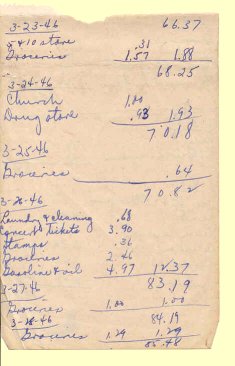 3-23-46 66.37
5 & 10 store .31
Groceries 1.57 1.88
68.25
3-24-46
Church 1.00
Drug store .93 1.93
70.18
3-25-46
Groceries .64
70.82
3-26-46
Laundry & cleaning .68
Concert Tickets 3.90
Stamps .36
Groceries 2.46
Gasoline & oil 4.97 12.37
83.19
3-27-46
Groceries 1.00 1.00
84.19
3-28-46
Groceries 1.29 1.29
85.48